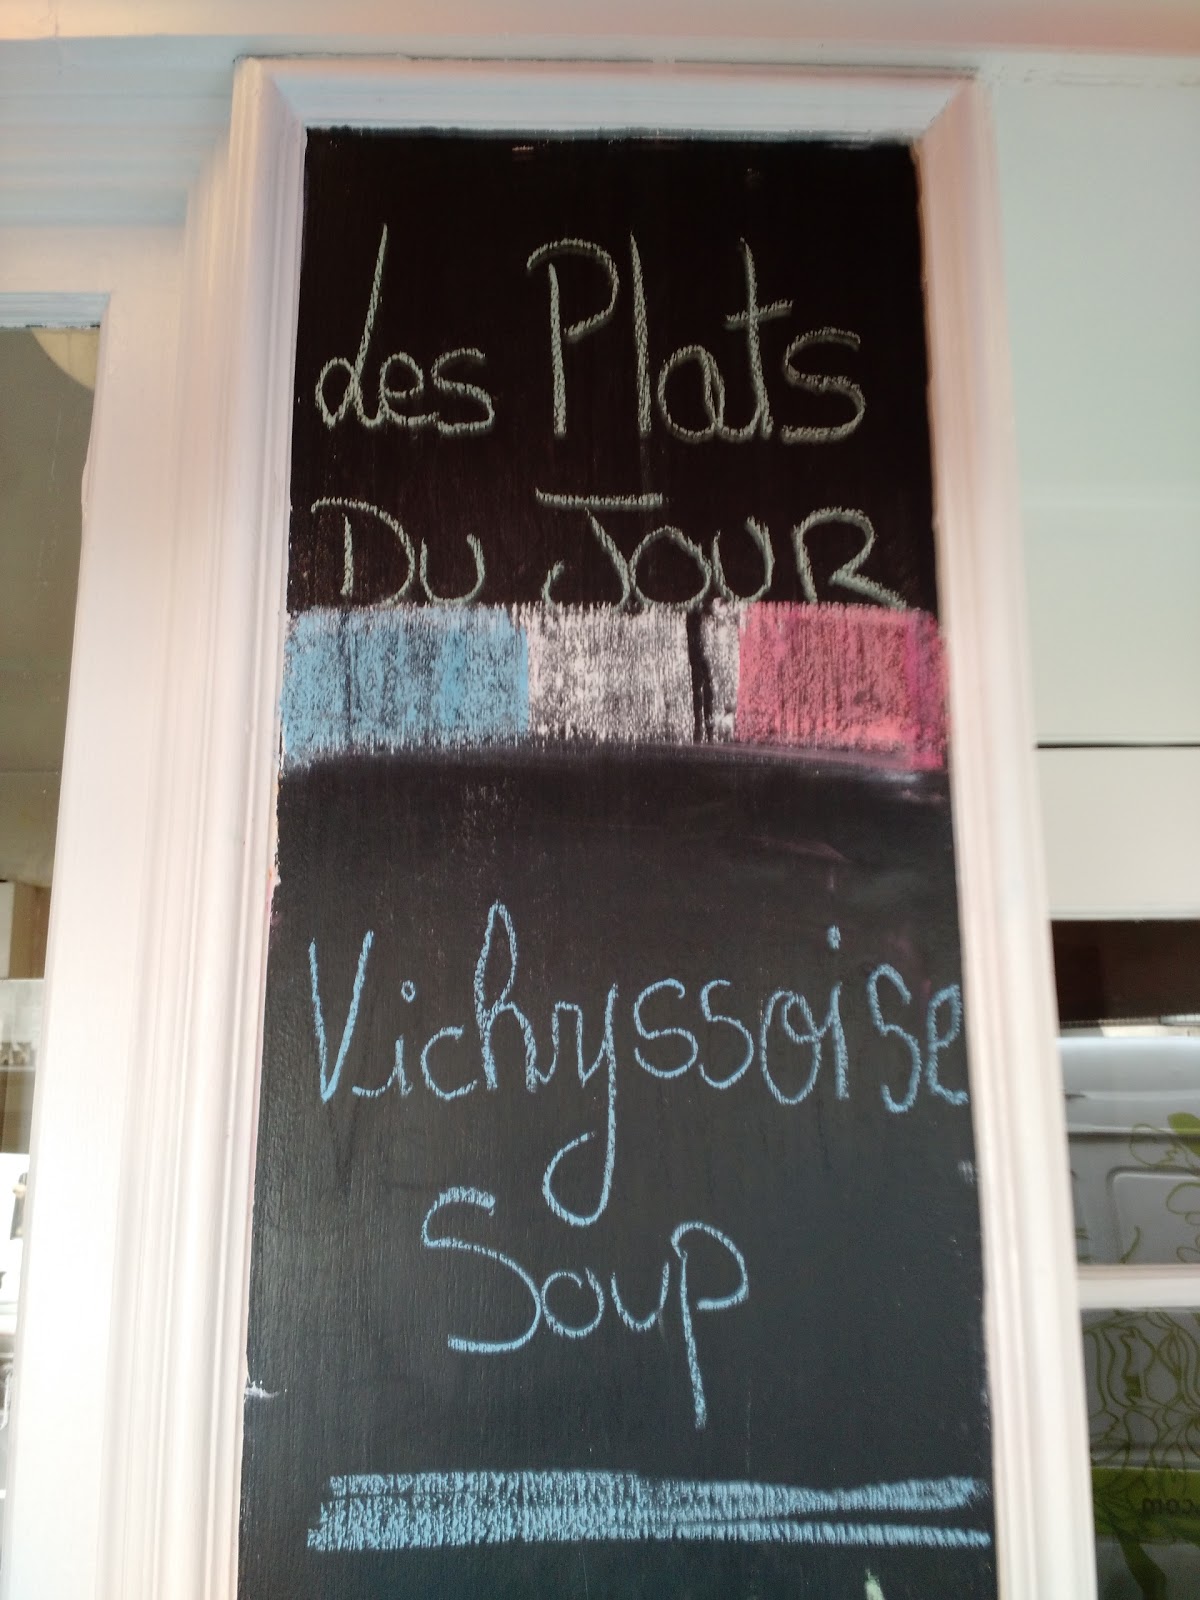 Les Plats
Du JOUR
Vichyssoise
Soup
com